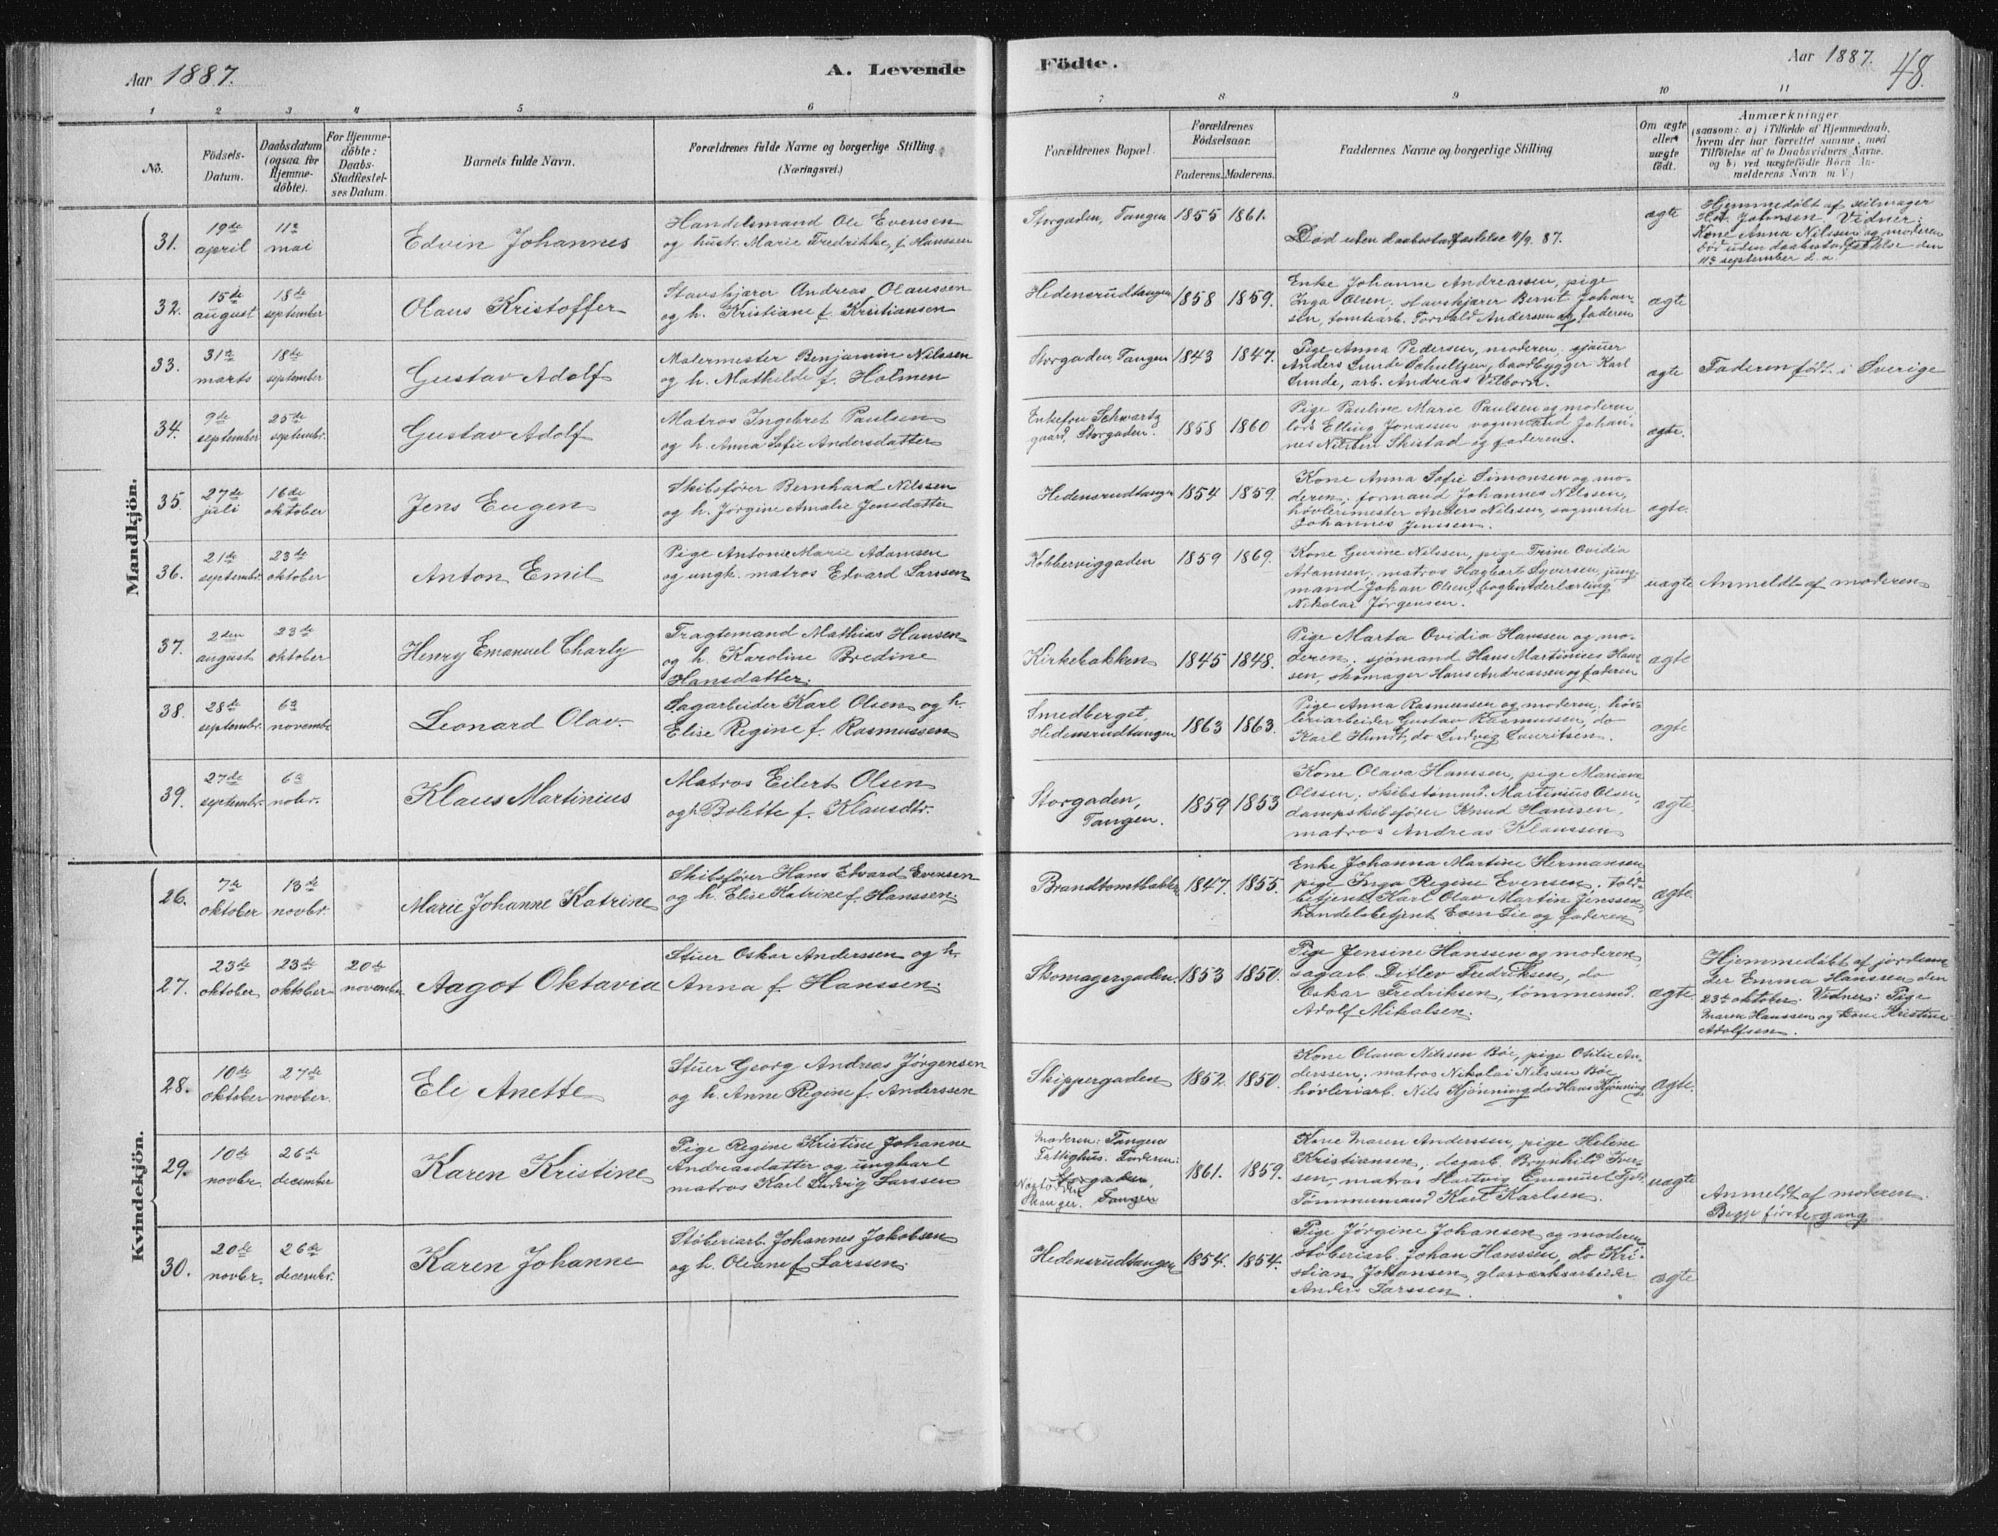 Aar 1887.
A. Levende
Födte.
Aar 1887.
48.
1 2 3 4 5 6 7 8 9 10 11
No.
Födsels-
Datum.
Daabsdatum
(ogsaa for
Hjemme-
döbte).
For Hjemme-
döbte:
Daabs-
Stadfæstel-
ses Datum.
Barnets fulde Navn.
Forældrenes fulde Navne og borgerlige Stilling
(Næringsvei.)
Forældrenes Bopæl.
Forældrenes
Födselsaar.
Faderens. Moderens.
Faddernes Navne og borgerlige Stilling
Om ægte
eller
uægte
födt.
Anmærkninger
(saasom: a) i Tilfælde af Hjemmedaab,
hvem der har forrettet samme, med
Tilföielse af to Daabsvidners Navne.
og b) ved uægtefödte Börn An-
melderens Navn m. V.)
Mandkjön.
31.
19de
april
11te
mai
Edvin Johannes
Handelsmand Ole Evensen
og hustr. Marie Fredrikke, f. Hanssen
Storgaden, Tangen
1855
1861.
Død uden daabsstadfæstelse 11/9. 87.
ægte
Hjemmedøbt af seilmager
Johnsen. Vidner:
Kone Anna Nilssen og moderen
død uden daabsstadfæstelse den
11te september d. a.
32.
15de
august
18de
september
Olaus Kristoffer
Stavskjærer Andreas Olaussen
og h. Kristiane f. Kristiansen
Hedensrudtangen
1858
1859.
Enke Johanne Andreassen, pige
Inga Olsen, stavskjærer Bernt Johan-
sen, tomtearb. Torvald Anderssen og faderen
ægte
33.
31te
marts
18de
september
Gustav Adolf
Malermester Benjamin Nilssen
og h. Mathilde f. Holmen
Storgaden, Tangen
1843
1847.
Pige Anna Pedersen, moderen, sjauer
Anders Lunde baadbygger Karl
Lunde, arb. Andreas
ægte
Faderen født i Sverige
34.
9de
september
25de
septembr.
Gustav Adolf
Matros Ingebret Paulsen
og h. Anna Sofie Andersdatter
Enkefru Schwartz
gaard, Storgaden.
1858
1860
Pige Pauline Marie Paulsen og moderen,
lods Elling Jonassen vognmand Johan-
nes Nilsen Skistad og faderen.
ægte.
35.
27de
juli
16de
oktober
Jens Eugen
Skibsfører Bernhard Nilssen
og h. Jørgine Amalie Jensdatter
Hedensrudtangen
1854
1859.
Kone Anna Sofie Simonsen og mo-
deren, formand Johannes Nilssen,
høvlerimester Anders Nilssen, sagmester
Johannes Jenssen.
ægte.
36.
21de
septembr.
23de
oktober
Anton Emil
Pige Antonie Marie Adamsen
og ungk. matros Edvard Larssen
Kobberviggaden
1859
1869.
Kone Gurine Nilssen, pige Trine Ovidia
Adamsen, matros Hagbart Syversen, jung-
mand Johan Olsen, bogbinderlærling
Nikolai Jørgensen.
uægte
Anmeldt af moderen
37.
2den
august
23de
oktober
Henry Emanuel Charly
Fragtemand Mathias Hansen
og h. Karoline Bredine
Hansdatter.
Kirkebakken
1845
1848.
Pige Marta Ovidia Hanssen og mo-
deren, sjömand Hans Martinius Han-
sen, skomager Hans Andreassen og faderen
ægte
38.
28de
septembr.
6te
novembr.
Leonard Olav.
Sagarbeider Karl Olsen og h.
Elise Regine f. Rasmussen
Smedberget,
Hedensrudtangen
1863
1863.
Pige Anna Rasmussen og moderen, høv-
leriarbeider Gustav Rasmussen, do
Karl Hundt, do Ludvig Lauritsen.
ægte
39.
27de
septembr.
6te
nobr.
Klaus Martinius
Matros Eilert Olsen
og h. Bolette f. Klausdtr.
Storgaden,
Tangen.
1859
1853
Kone Olava Hanssen, pige Mariane
Olssen, skibstømmd. Martinius Olsen,
dampskibsfører Knud Hanssen,
matros Andreas Klaussen
ægte.
Kvindekjön.
26.
7de
oktober
13de
novbr.
Marie Johanne Katrine
Skibsfører Hans Edvard Evensen
og h. Elise Katrine f. Hanssen
Brandtomtbakken
1847.
1855.
Enke Johanna Martine Hermansen,
pige Inga Regine Evensen, told-
betjent Karl Olav Martin Jenssen,
handelsbetjent Even Lie og faderen
ægte
27.
23de
oktober
23de
oktober
20de
november
Aagot Oktavia
Stuer Oskar Anderssen og h.
Anna f. Hanssen.
Skomagergaden.
1853
1850.
Pige Jensine Hanssen og moderen,
sagarb. Ditlev Fredriksen, do
Oskar Fredriksen, tømmermd.
Adolf Mikalsen.
ægte.
Hjemmedøbt af jordemo-
der Emma Hanssen den
23de oktober. Vidner: Pige
Maren Hanssen og kone Kristine
Adolfsen.
28.
10de
oktober
27de
novber.
Ele Anette
Stuer Georg Andreas Jørgensen
og h. Anne Regine f. Anderssen
Skippergaden
1852.
1850.
Kone Olava Nilssen Bøe, pige Otilie An-
derssen, matros Nikolai Nilssen Bøe,
høvleriarb. Nils Kjønning do Hans Kjønning
ægte.
29.
10de
novbr.
26de
december
Karen Kristine
Pige Regine Kristine Johanne
Andreasdatter og ungkarl
matros Karl Ludvig Larssen
Moderen: Tangens
Fattighus. Faderen:
Storgaden,
Tangen
1861.
1859.
Kone Maren Anderssen, pige Helene
Kristiansen, dagarb. Brynhild Iver-
sen, matros Hartvig Emanuel
Tømmermand Karl Karlsen.
uægte
Anmeldt af moderen.
Begge første gang
30.
20de
novbr.
26de
decembr.
Karen Johanne
Støberiarb. Johannes Jakobsen
og h. Oleane f. Larssen.
Hedensrudtangen
1854.
1854.
Pige Jørgine Johansen og moderen,
støberiarb. Johan Hanssen, do Kri-
stian Johansen, glasværksarbeider
Anders Larssen.
ægte